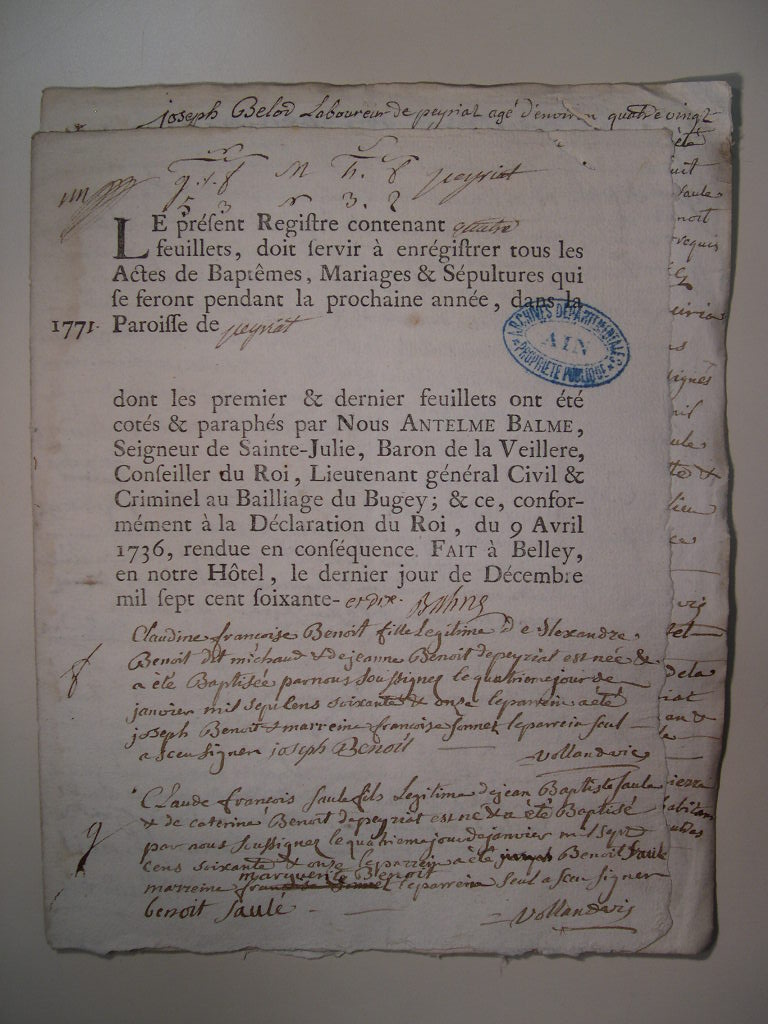 joseph Belod Laboureur de peyriat agé d'environ quatre vingt
g. f M h. f peyriat
5 3 N 3. 2
LE présent Registre contenant quatre
feuillets, doit servir à enrégistrer tous les
Actes de Baptêmes, Mariages & Sépultures qui
se feront pendant la prochaine année, dans la
1771. Paroisse de peyriat
ARCHIVES DÉPARTEMENTALES
AIN
PROPRIÉTÉ PUBLIQUE
dont les premier & dernier feuillets ont été
cotés & paraphés par Nous ANTELME BALME,
Seigneur de Sainte-Julie, Baron de la Veillere,
Conseiller du Roi, Lieutenant général Civil &
Criminel au Bailliage du Bugey; & ce, confor-
mément à la Déclaration du Roi, du 9 Avril
1736, rendue en conséquence. FAIT à Belley,
en notre Hôtel, le dernier jour de Décembre
mil sept cent soixante- et dix. Balme
Claudine francoise Benoit fille Legitime d'e Alexandre
Benoit dit michaud & de jeanne Benoit de peyriat est née &
a été Baptisée par nous soussignez le quatrieme jour de
janvier mil sept cens soixante & onze le parrein a eté
joseph Benoit & marreine francoise sonnet le parrein seul
a sceu signer joseph Benoit
Vollandvis
f
Claude francois saule fils Legitime de jean Baptiste saule
& de caterine Benoit de peyriat est né & a été Baptisé
par nous soussignez le quatrieme jour de janvier mil sept
cens soixante & onze le parrein a eté joseph Benoit saule
marguerite Benoit
marreine francoise sonnet le parrein seul a sceu signer
benoit saule
Vollandvis
g